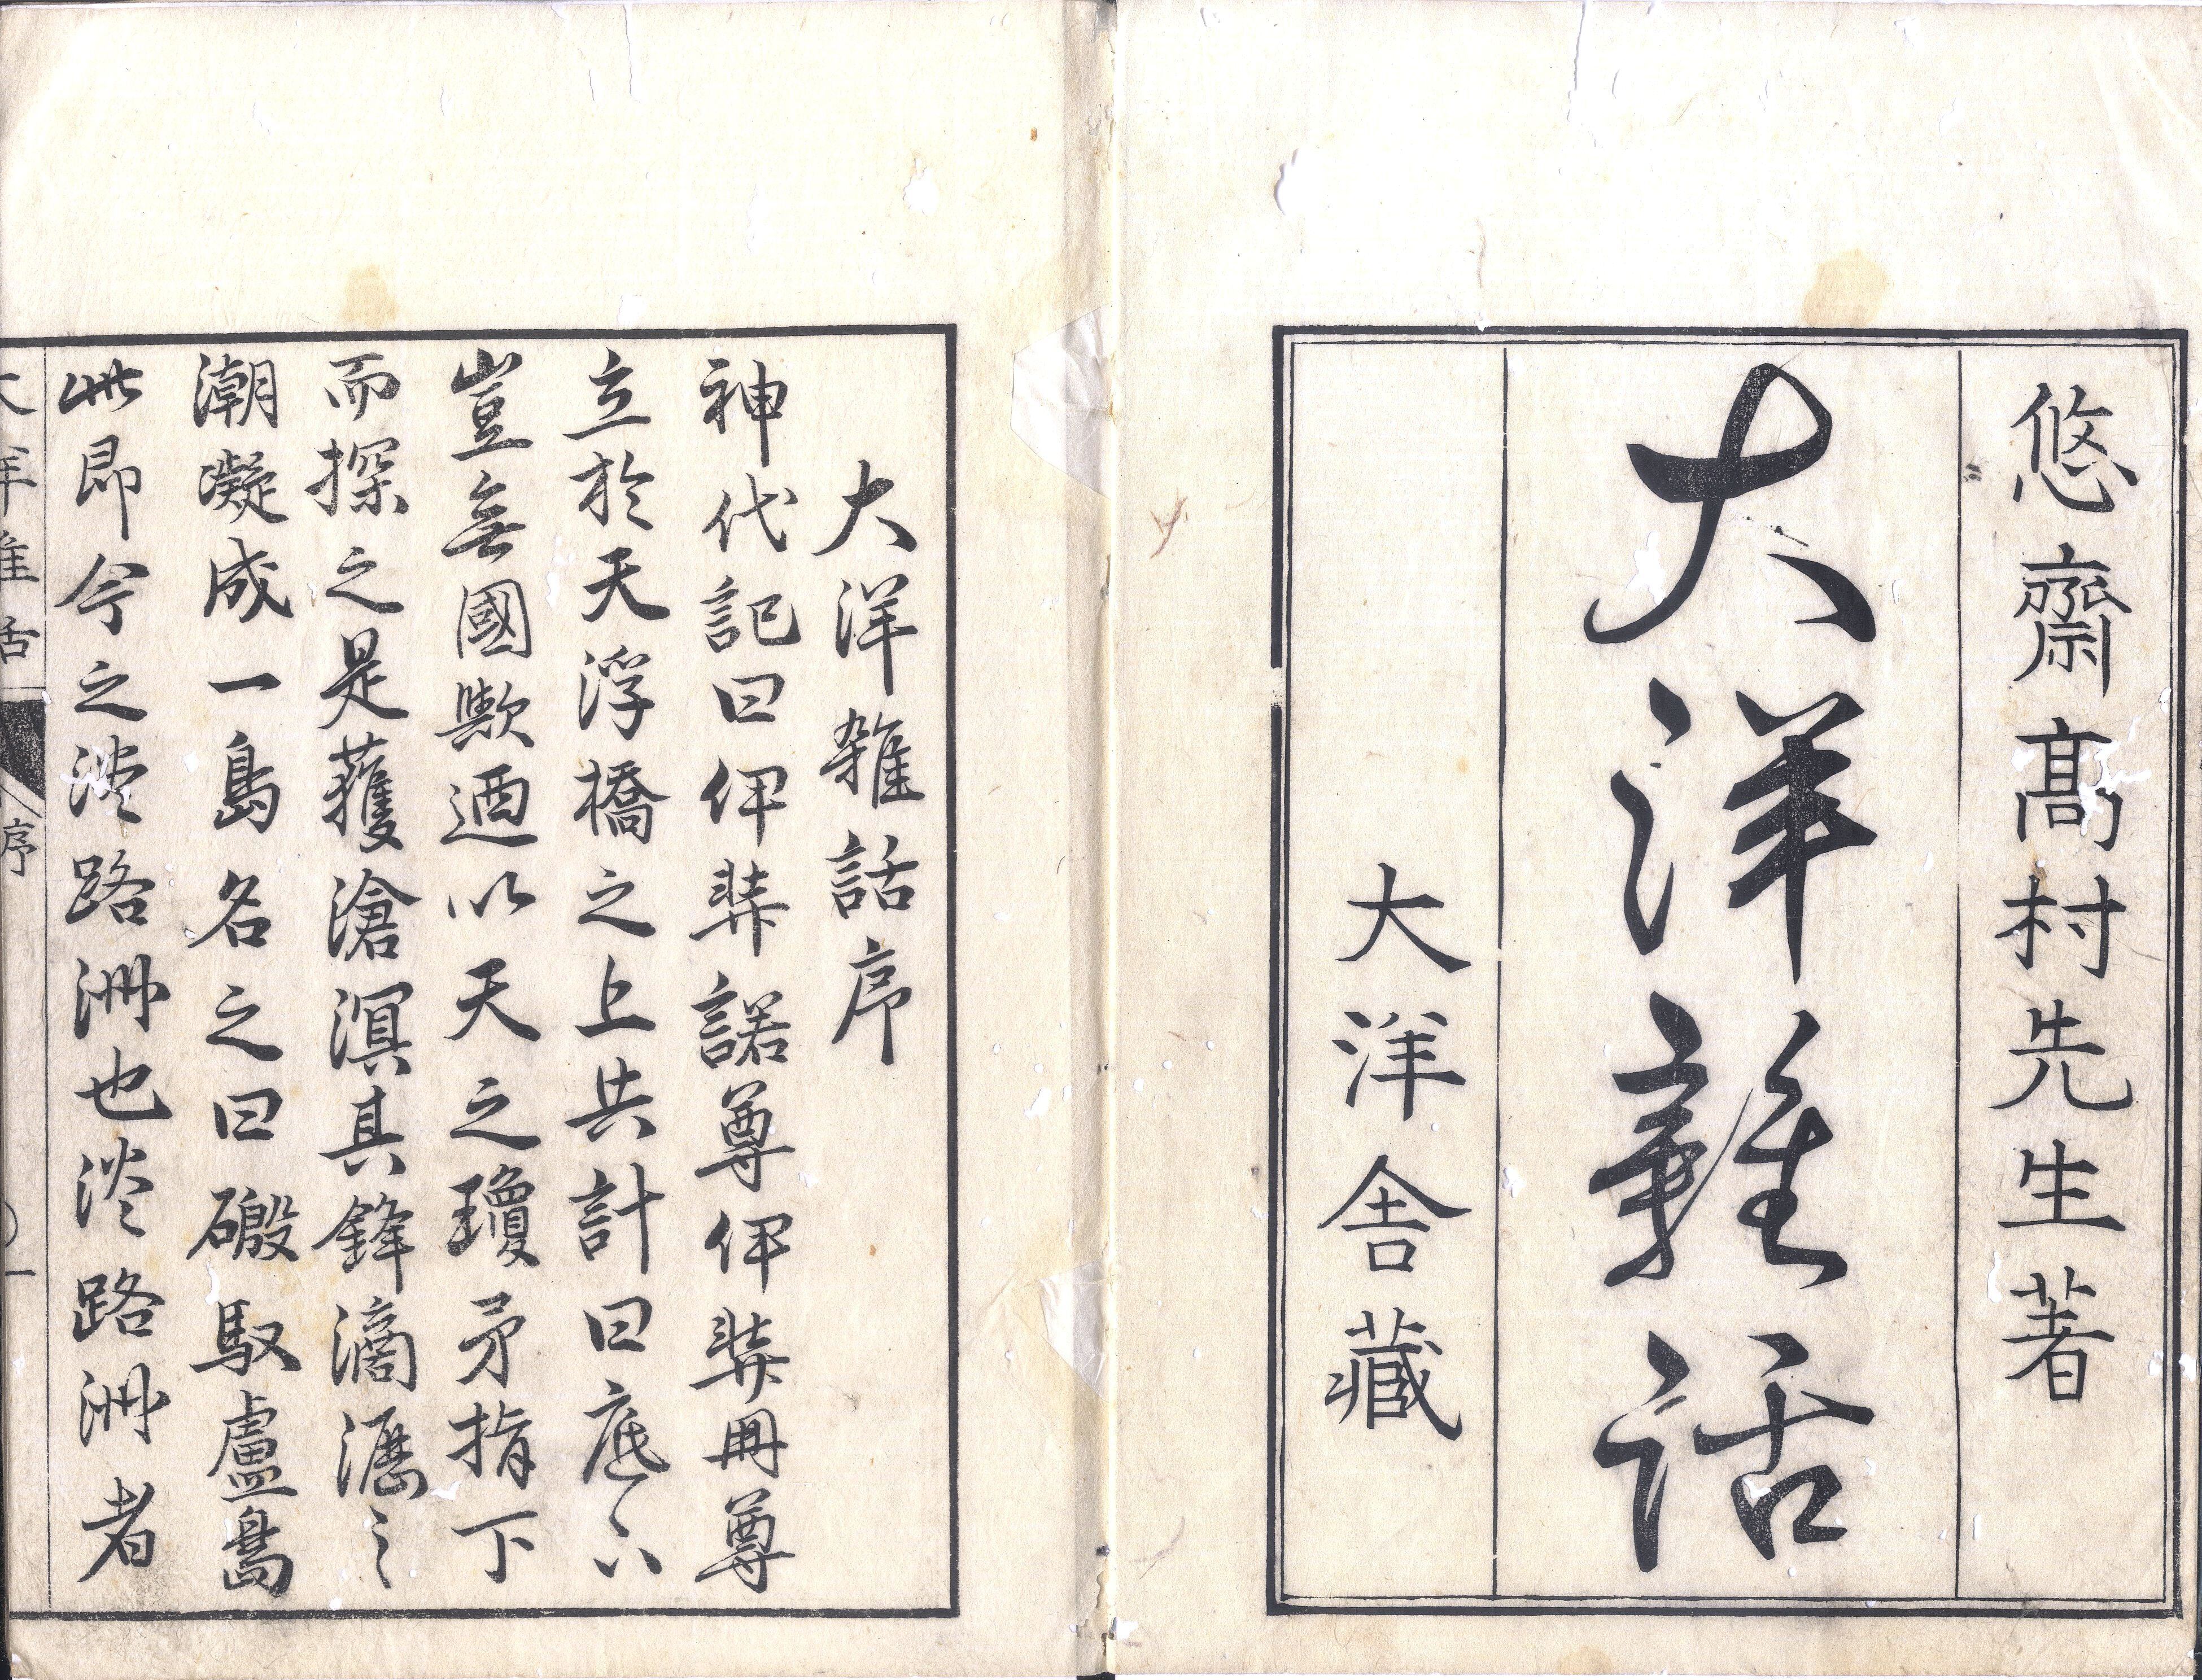 悠齋髙村先生著
大洋雜話
大洋舍藏
大洋雜話序
神代記曰伊弉諾尊伊弉冊尊
立於天浮橋之上共計曰底下
豈無國歟廼以天之瓊矛指下
而探之是獲滄溟其鋒滴瀝之
潮凝成一島名之曰磤馭盧島
此即今之淡路洲也淡路洲者
大洋雜話
序
一